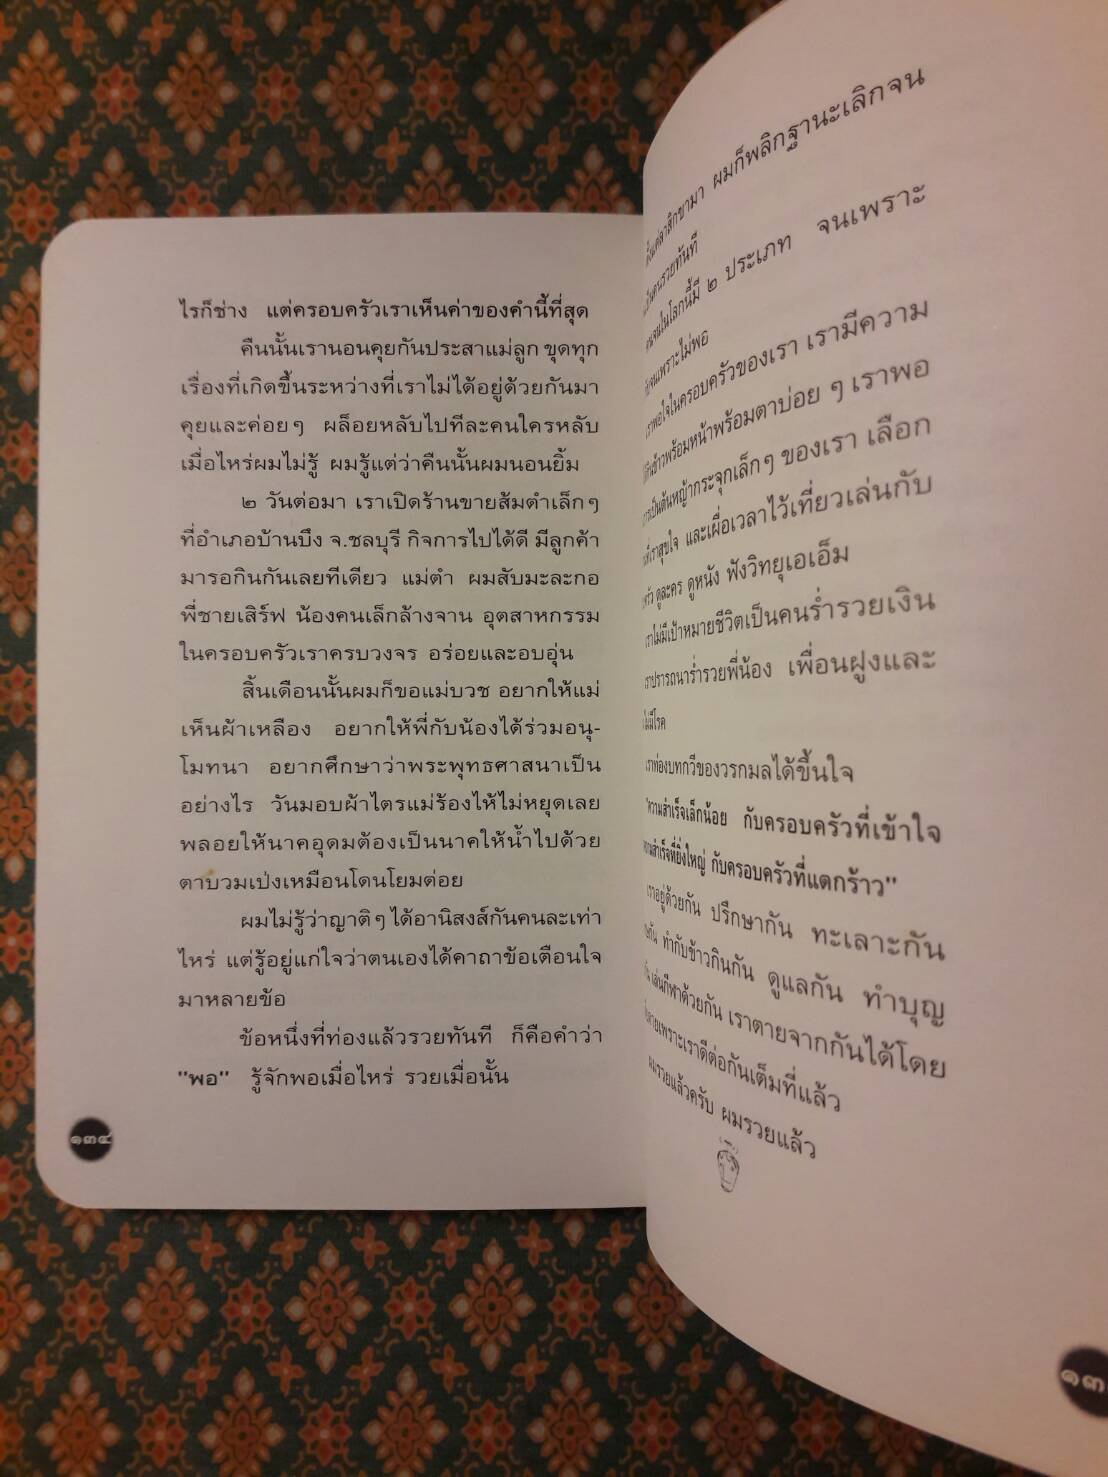 ไรก็ช่าง แต่ครอบครัวเราเห็นค่าของคำนี้ที่สุด
คืนนั้นเรานอนคุยกันประสาแม่ลูก ขุดทุก
เรื่องที่เกิดขึ้นระหว่างที่เราไม่ได้อยู่ด้วยกันมา
คุยและค่อยๆ ผล็อยหลับไปทีละคนใครหลับ
เมื่อไหร่ผมไม่รู้ ผมรู้แต่ว่าคืนนั้นผมนอนยิ้ม
๒ วันต่อมา เราเปิดร้านขายส้มตำเล็กๆ
ที่อำเภอบ้านบึง จ.ชลบุรี กิจการไปได้ดี มีลูกค้า
มารอกินกันเลยทีเดียว แม่ตำ ผมสับมะละกอ
พี่ชายเสิร์ฟ น้องคนเล็กล้างจาน อุตสาหกรรม
ในครอบครัวเราครบวงจร อร่อยและอบอุ่น
สิ้นเดือนนั้นผมก็ขอแม่บวช อยากให้แม่
เห็นผ้าเหลือง อยากให้พี่กับน้องได้ร่วมอนุ-
โมทนา อยากศึกษาว่าพระพุทธศาสนาเป็น
อย่างไร วันมอบผ้าไตรแม่ร้องไห้ไม่หยุดเลย
พลอยให้นาคอุดมต้องเป็นนาคให้น้ำไปด้วย
ตาบวมเป่งเหมือนโดนโยมต่อย
ผมไม่รู้ว่าญาติๆ ได้อานิสงส์กันคนละเท่า
ไหร่ แต่รู้อยู่แก่ใจว่าตนเองได้คาถาข้อเตือนใจ
มาหลายข้อ
ข้อหนึ่งที่ท่องแล้วรวยทันที ก็คือคำว่า
"พอ" รู้จักพอเมื่อไหร่ รวยเมื่อนั้น
๑๓๔
ตั้งแต่ลาสิกขามา ผมก็พลิกฐานะเลิกจน
เป็นคนรวยทันที
คนจนในโลกนี้มี ๒ ประเภท จนเพราะ
จนเพราะไม่พอ
เราพอใจในครอบครัวของเรา เรามีความ
กินข้าวพร้อมหน้าพร้อมตาบ่อย ๆ เราพอ
เป็นต้นหญ้ากระจุกเล็กๆ ของเรา เลือก
ที่เราสุขใจ และเผื่อเวลาไว้เที่ยวเล่นกับ
ดูละคร ดูหนัง ฟังวิทยุเอเอ็ม
เราไม่มีเป้าหมายชีวิตเป็นคนร่ำรวยเงิน
เราปรารถนาร่ำรวยพี่น้อง เพื่อนฝูงและ
ไม่มีโรค
เราท่องบทกวีของวรกมลได้ขึ้นใจ
"ความสำเร็จเล็กน้อย กับครอบครัวที่เข้าใจ
ความสำเร็จที่ยิ่งใหญ่ กับครอบครัวที่แตกร้าว"
เราอยู่ด้วยกัน ปรึกษากัน ทะเลาะกัน
ทำกับข้าวกินกัน ดูแลกัน ทำบุญ
เล่นกีฬาด้วยกัน เราตายจากกันได้โดย
เพราะเราดีต่อกันเต็มที่แล้ว
ผมรวยแล้วครับ ผมรวยแล้ว
๑๓